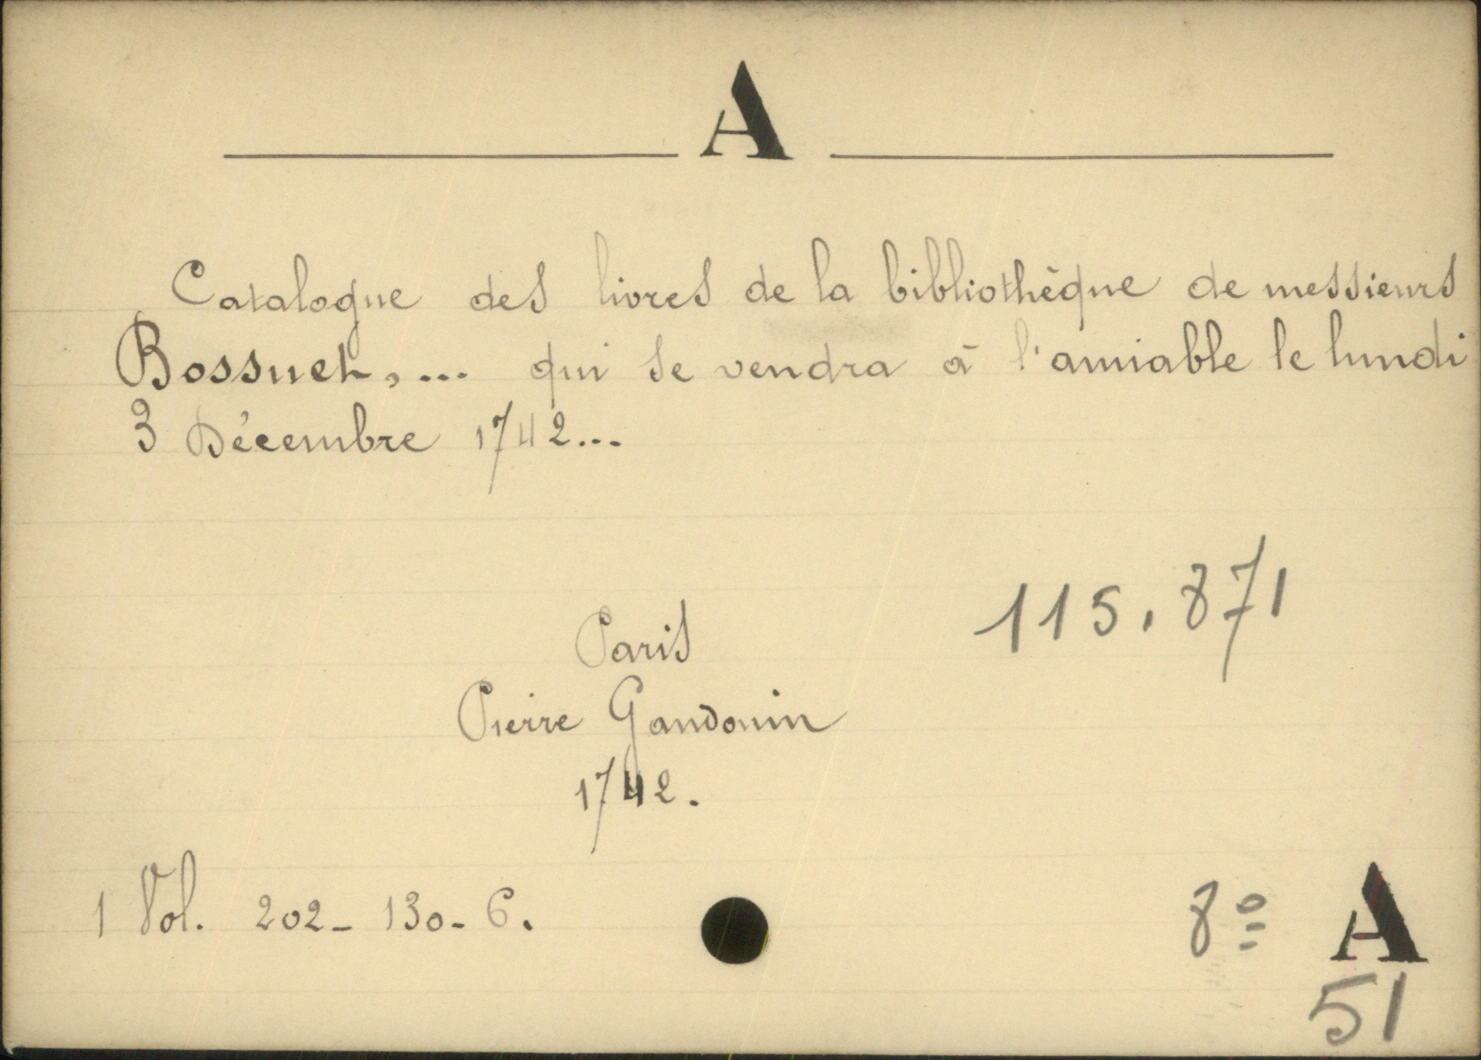 A
Catalogue des livres de la bibliothèque de messieurs
Bossuet,... qui se vendra à l'amiable le lundi
3 Décembre 1742...
115.871
Paris
Pierre Gandouin
1742.
1 Vol. 202-130-6.
8º A
51